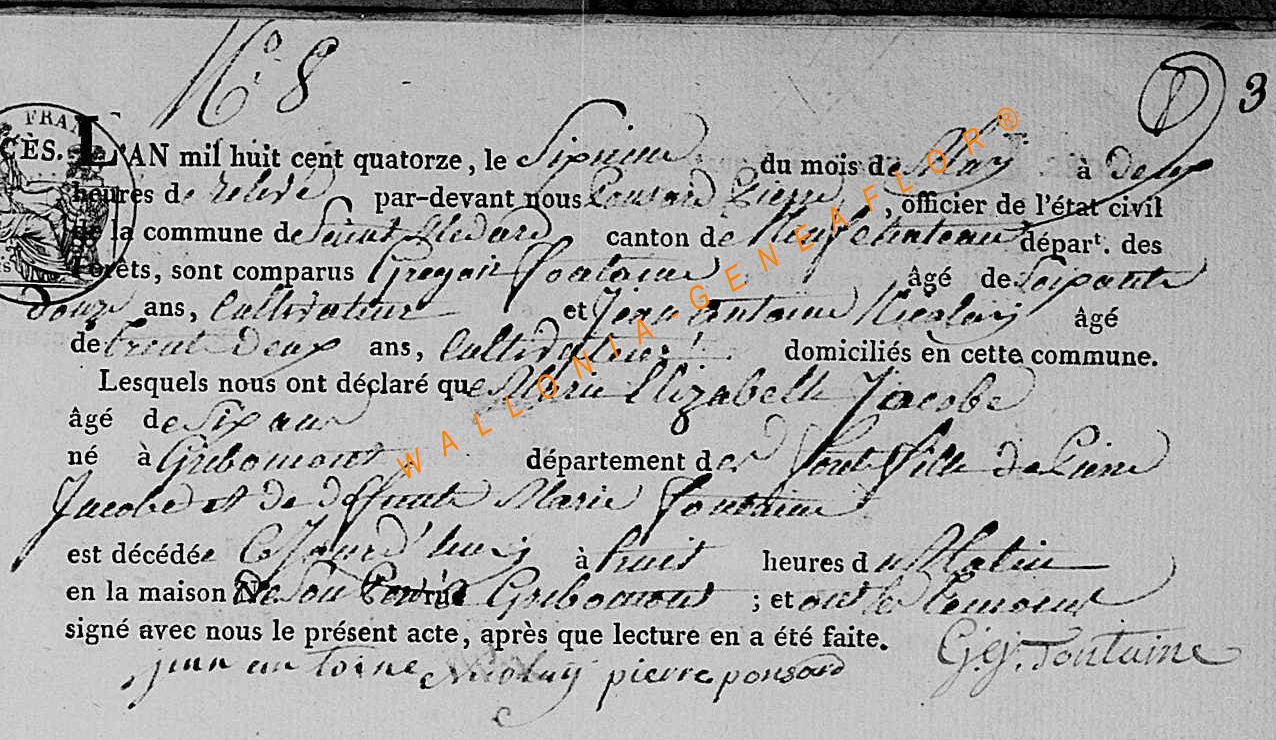 N.° 8
3
FRAN
CÈS.
L'AN mil huit cent quatorze, le Sixieme du mois de May à deux
heures de relevé par-devant nous Ponsard Pierre, officier de l'état civil
de la commune de Saint Medard canton de Neufchateau départ. des
Forêts, sont comparus Gregoir fontaine âgé de Soixante
douze ans, Cultivateur et Jean antoine Nicolay âgé
de trent deux ans, Cultivateur domiciliés en cette commune.
Lesquels nous ont déclaré que Marie Elizabeth Jacobe
âgé de Six ans
né à Gribomont département des forêt fille de Pierre
Jacobe et de deffunte Marie fontaine
est décédée Cejourd'huy à huit heures du Matin
en la maison De Son Pere à Gribomont ; et ont les temoins
signé avec nous le présent acte, après que lecture en a été faite.
jean antoine Nicolay pierre ponsard G.g. Fontaine
WALLONIA-GENEAFLOR®